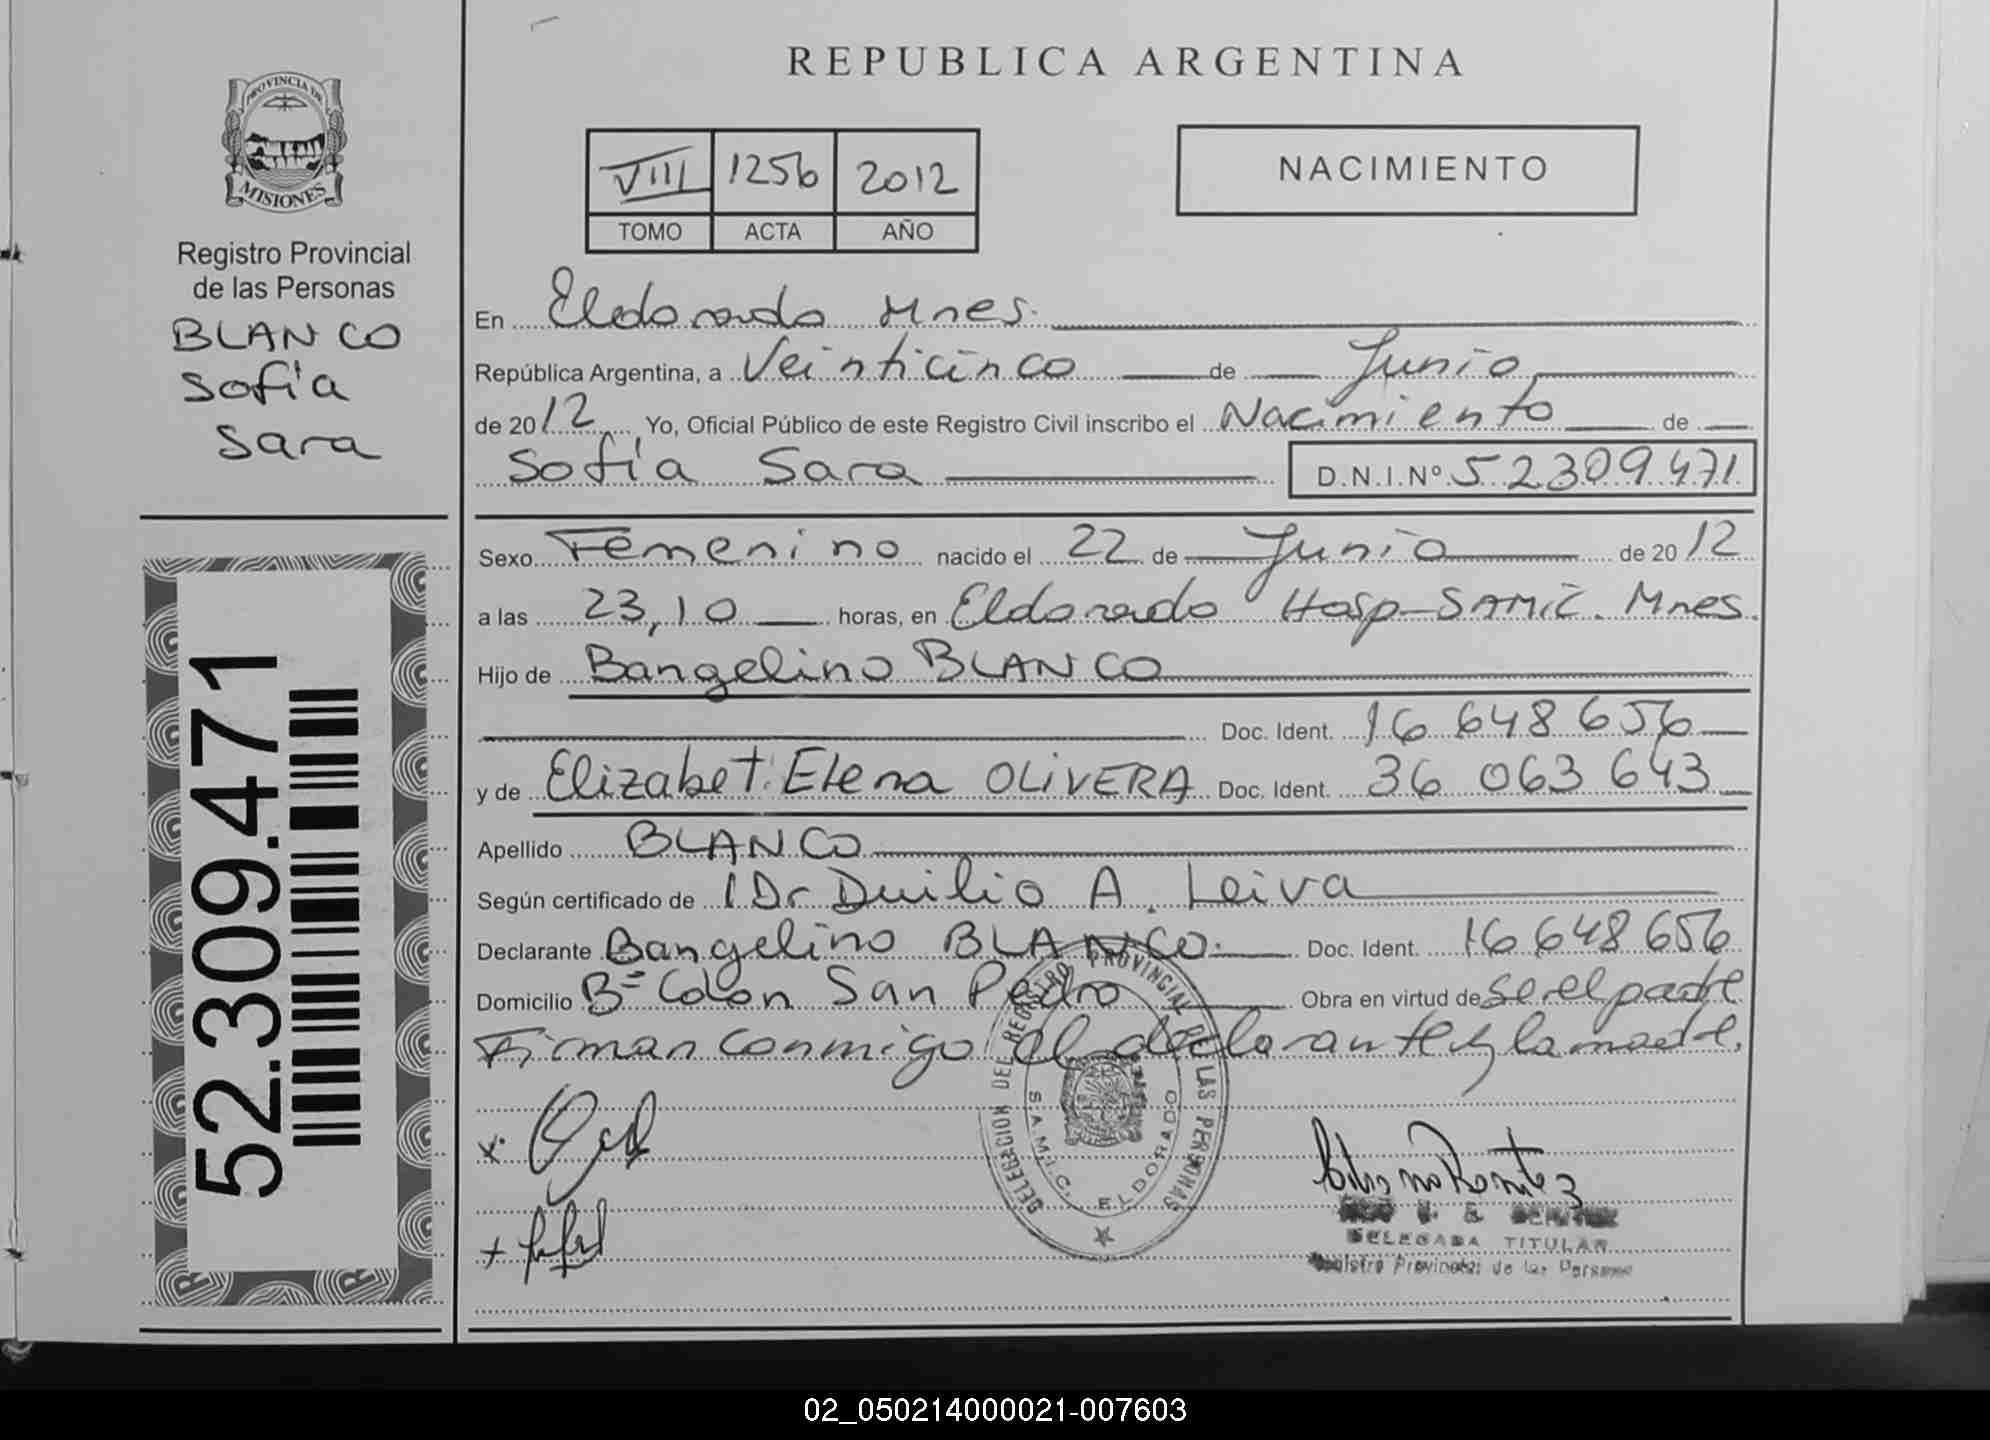 REPUBLICA ARGENTINA
PROVINCIA DE
MISIONES
Registro Provincial
de las Personas
BLANCO
Sofía
Sara
VIII 1256 2012
TOMO ACTA AÑO
NACIMIENTO
En Eldorado Mnes.
República Argentina, a Veinticinco de Junio
de 2012, Yo, Oficial Público de este Registro Civil inscribo el Nacimiento de
Sofía Sara D.N.I.Nº 52309471
Sexo Femenino nacido el 22 de Junio de 2012
a las 23,10 horas, en Eldorado Hosp-SAMIC. Mnes.
Hijo de Bangelino BLANCO
Doc. Ident. 16 648 656
y de Elizabet Elena OLIVERA Doc. Ident. 36 063 643
Apellido BLANCO
Según certificado de Dr Duilio A. Leiva
Declarante Bangelino BLANCO. Doc. Ident. 16 648 656
Domicilio Bº Colon San Pedro Obra en virtud de ser el padre
Firman conmigo el declarante y la madre.
52.309.471
DELEGACION DEL REGISTRO PROVINCIAL DE LAS PERSONAS
S.A.M.I.C. ELDORADO
DELEGADA TITULAR
Registro Provincial de las Personas
02_050214000021-007603